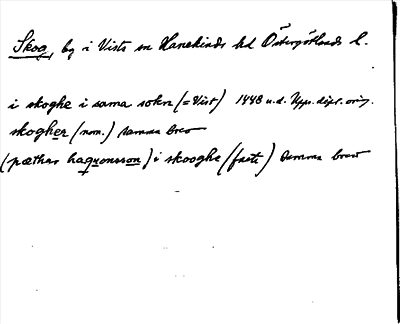 Skog, by i Vists sn Hanekinds hd Östergötlands l.
i skoghe i sama sokn (= Vist) 1448 u.d. Upps. dipl. orig.
skogher (nom.) samma brev
(pæthar haquonsson) i skooghe (faste) samma brev